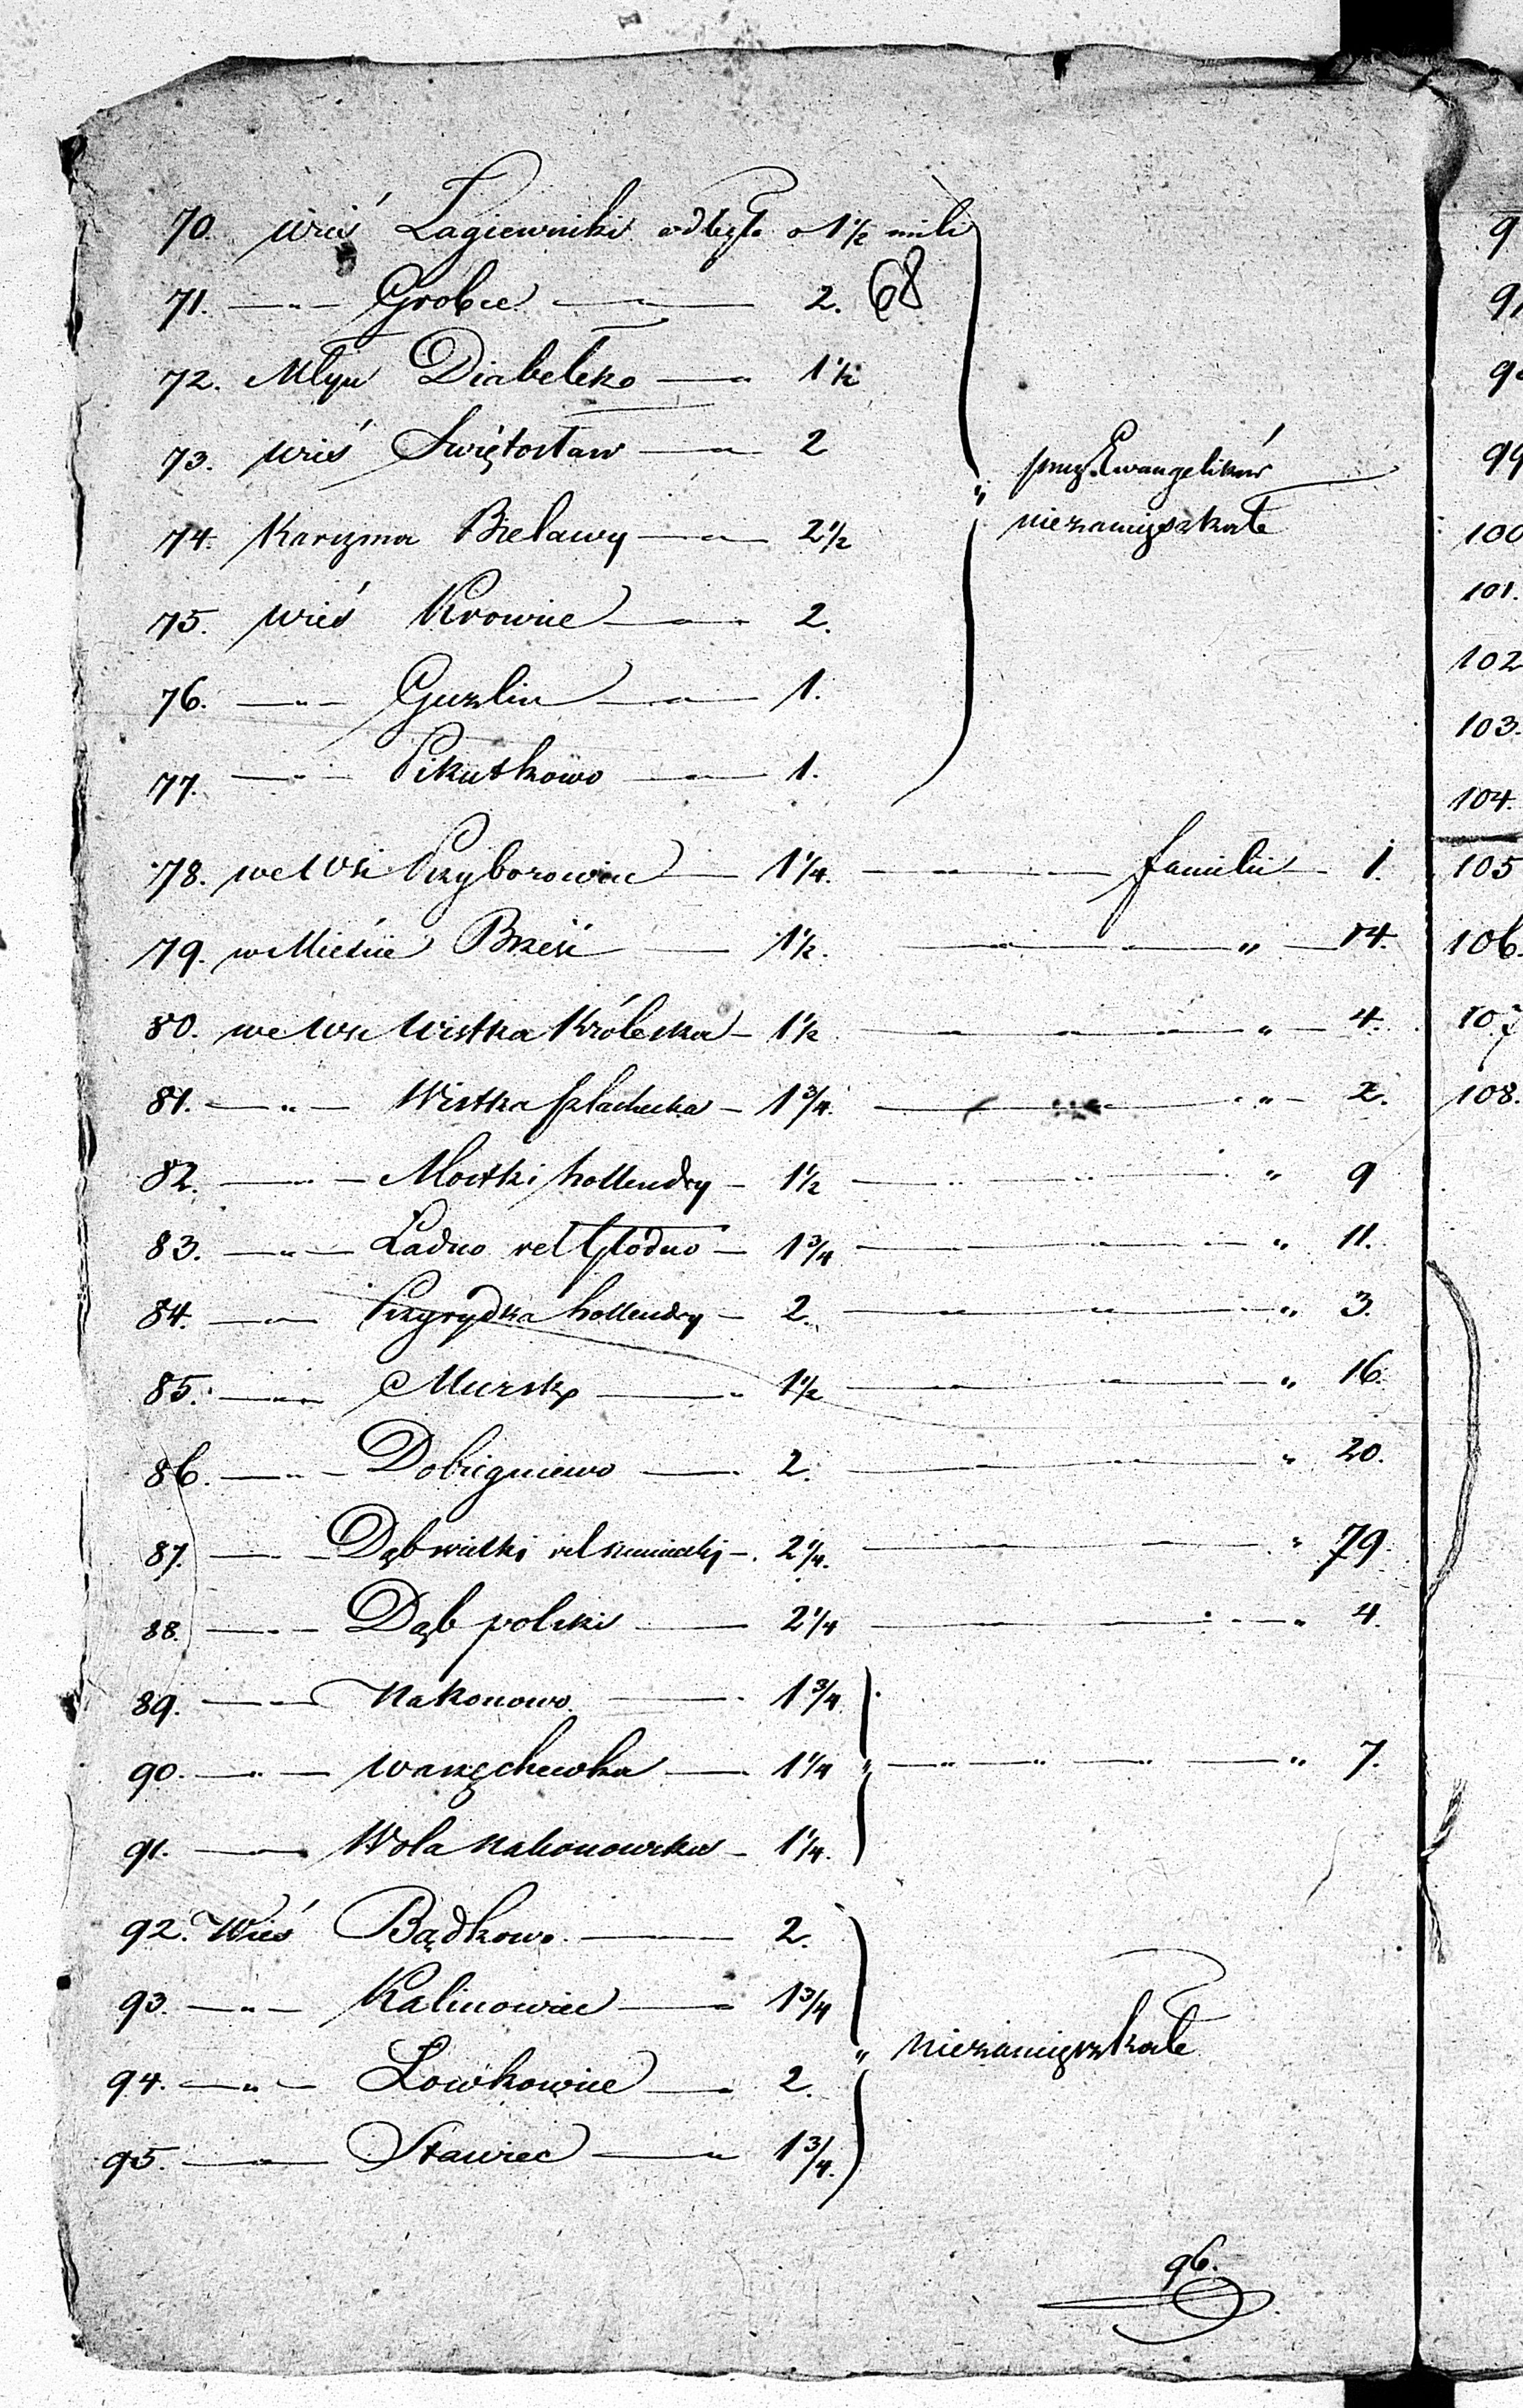 70. wieś Łagiewniki odległa o 1½ mili
71. —„— Grobce — „ — 2. 68
72. Młyn Diabełek — „ 1½
73. wieś Swiętosław — „ — 2
przez Ewangelików
74. Karczma Bielawy — „ — 2½ „ niezamięszkałe
75. wieś Krowice — „ — 2.
76. —„— Guzlin — „ — 1.
77. —„— Pikutkowo — „ — 1.
78. we Wsi Przyborowice — 1¼. — „ — „ — familii — 1.
79. w Mieście Brześć — 1½. — „ — „ — „ — 14.
80. we Wsi Wistka Królewska — 1½ — „ — „ — „ — 4.
81. —„— Wistka szlachecka — 1¾. — „ — „ — „ — 2.
82. —„— Mostki hollendry — 1½ — „ — „ — „ 9
83. —„— Ładno vel Głodno — 1¾ — „ — „ — „ 11.
84. —„— Przyrydka hollendry — 2. — „ — „ — „ 3.
85. —„— Mursk — „ 1½ — „ — „ — „ 16.
86. —„— Dobiegniewo — „ 2. — „ — „ 20.
87. —„— Dąb wielki vel niemiecki —. 2¼. — „ — „ 79.
88. —„— Dąb polski — 2¼ — „ — „ 4.
89. —„— Nakonowo. — 1¾.
90. —„— Warzęchewka — 1¼ „ —„—„—„— „ 7.
91. —„— Wola Nakonowska — 1¼.
92. Wieś Bądkowo. — 2.
93. —„— Kalinowiec — „ 1¾
94. —„— Łowkowice — „ 2. „ niezamięszkałe
95. —„— Stawiec — „ 1¾.
96.
9
97
98
99
100
101.
102
103.
104.
105
106.
107
108.